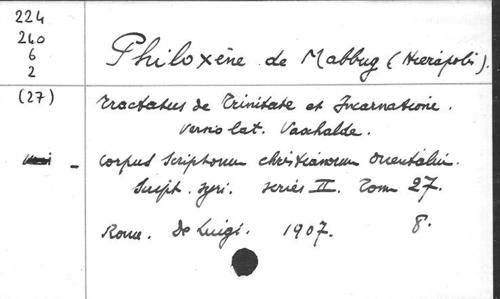 224
240
6
2
(27)
Philoxène de Mabbug (Hierápolis).
Tractatus de Trinitate et Incarnatione.
versio lat. Vaschalde.
- Corpus Scriptorum christianorum orientalium.
Script. syri. series II. Tom 27.
Rome. De Luigi. 1907. 8.